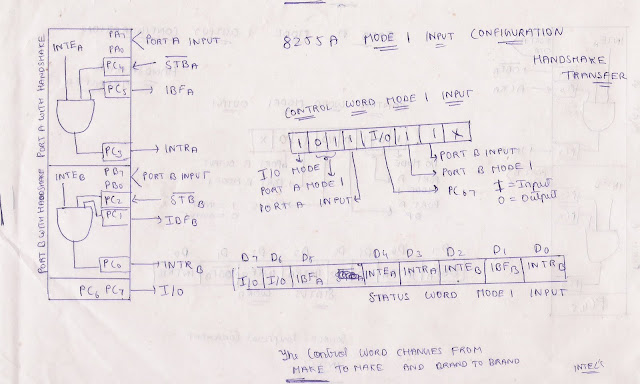 8255A MODE 1 INPUT CONFIGURATION
HANDSHAKE
TRANSFER
PORT A WITH HANDSHAKE
INTEA
PA7
PA0
PORT A INPUT
PC4
STBA
PC5
IBFA
PC3
INTRA
PORT B WITH HANDSHAKE
INTEB
PB7
PB0
PORT B INPUT
PC2
STBB
PC1
IBFB
PC0
INTRB
PC6 PC7
I/O
CONTROL WORD MODE 1 INPUT
1 0 1 1 I/O 1 1 X
I/O MODE
PORT A MODE 1
PORT A INPUT
PORT B INPUT
PORT B MODE 1
PC67
1 = Input
0 = Output
D7 D6 D5 D4 D3 D2 D1 D0
I/O I/O IBFA INTEA INTRA INTEB IBFB INTRB
STATUS WORD MODE 1 INPUT
The Control WORD CHANGES FROM
MAKE TO MAKE AND BRAND TO BRAND
INTEL's